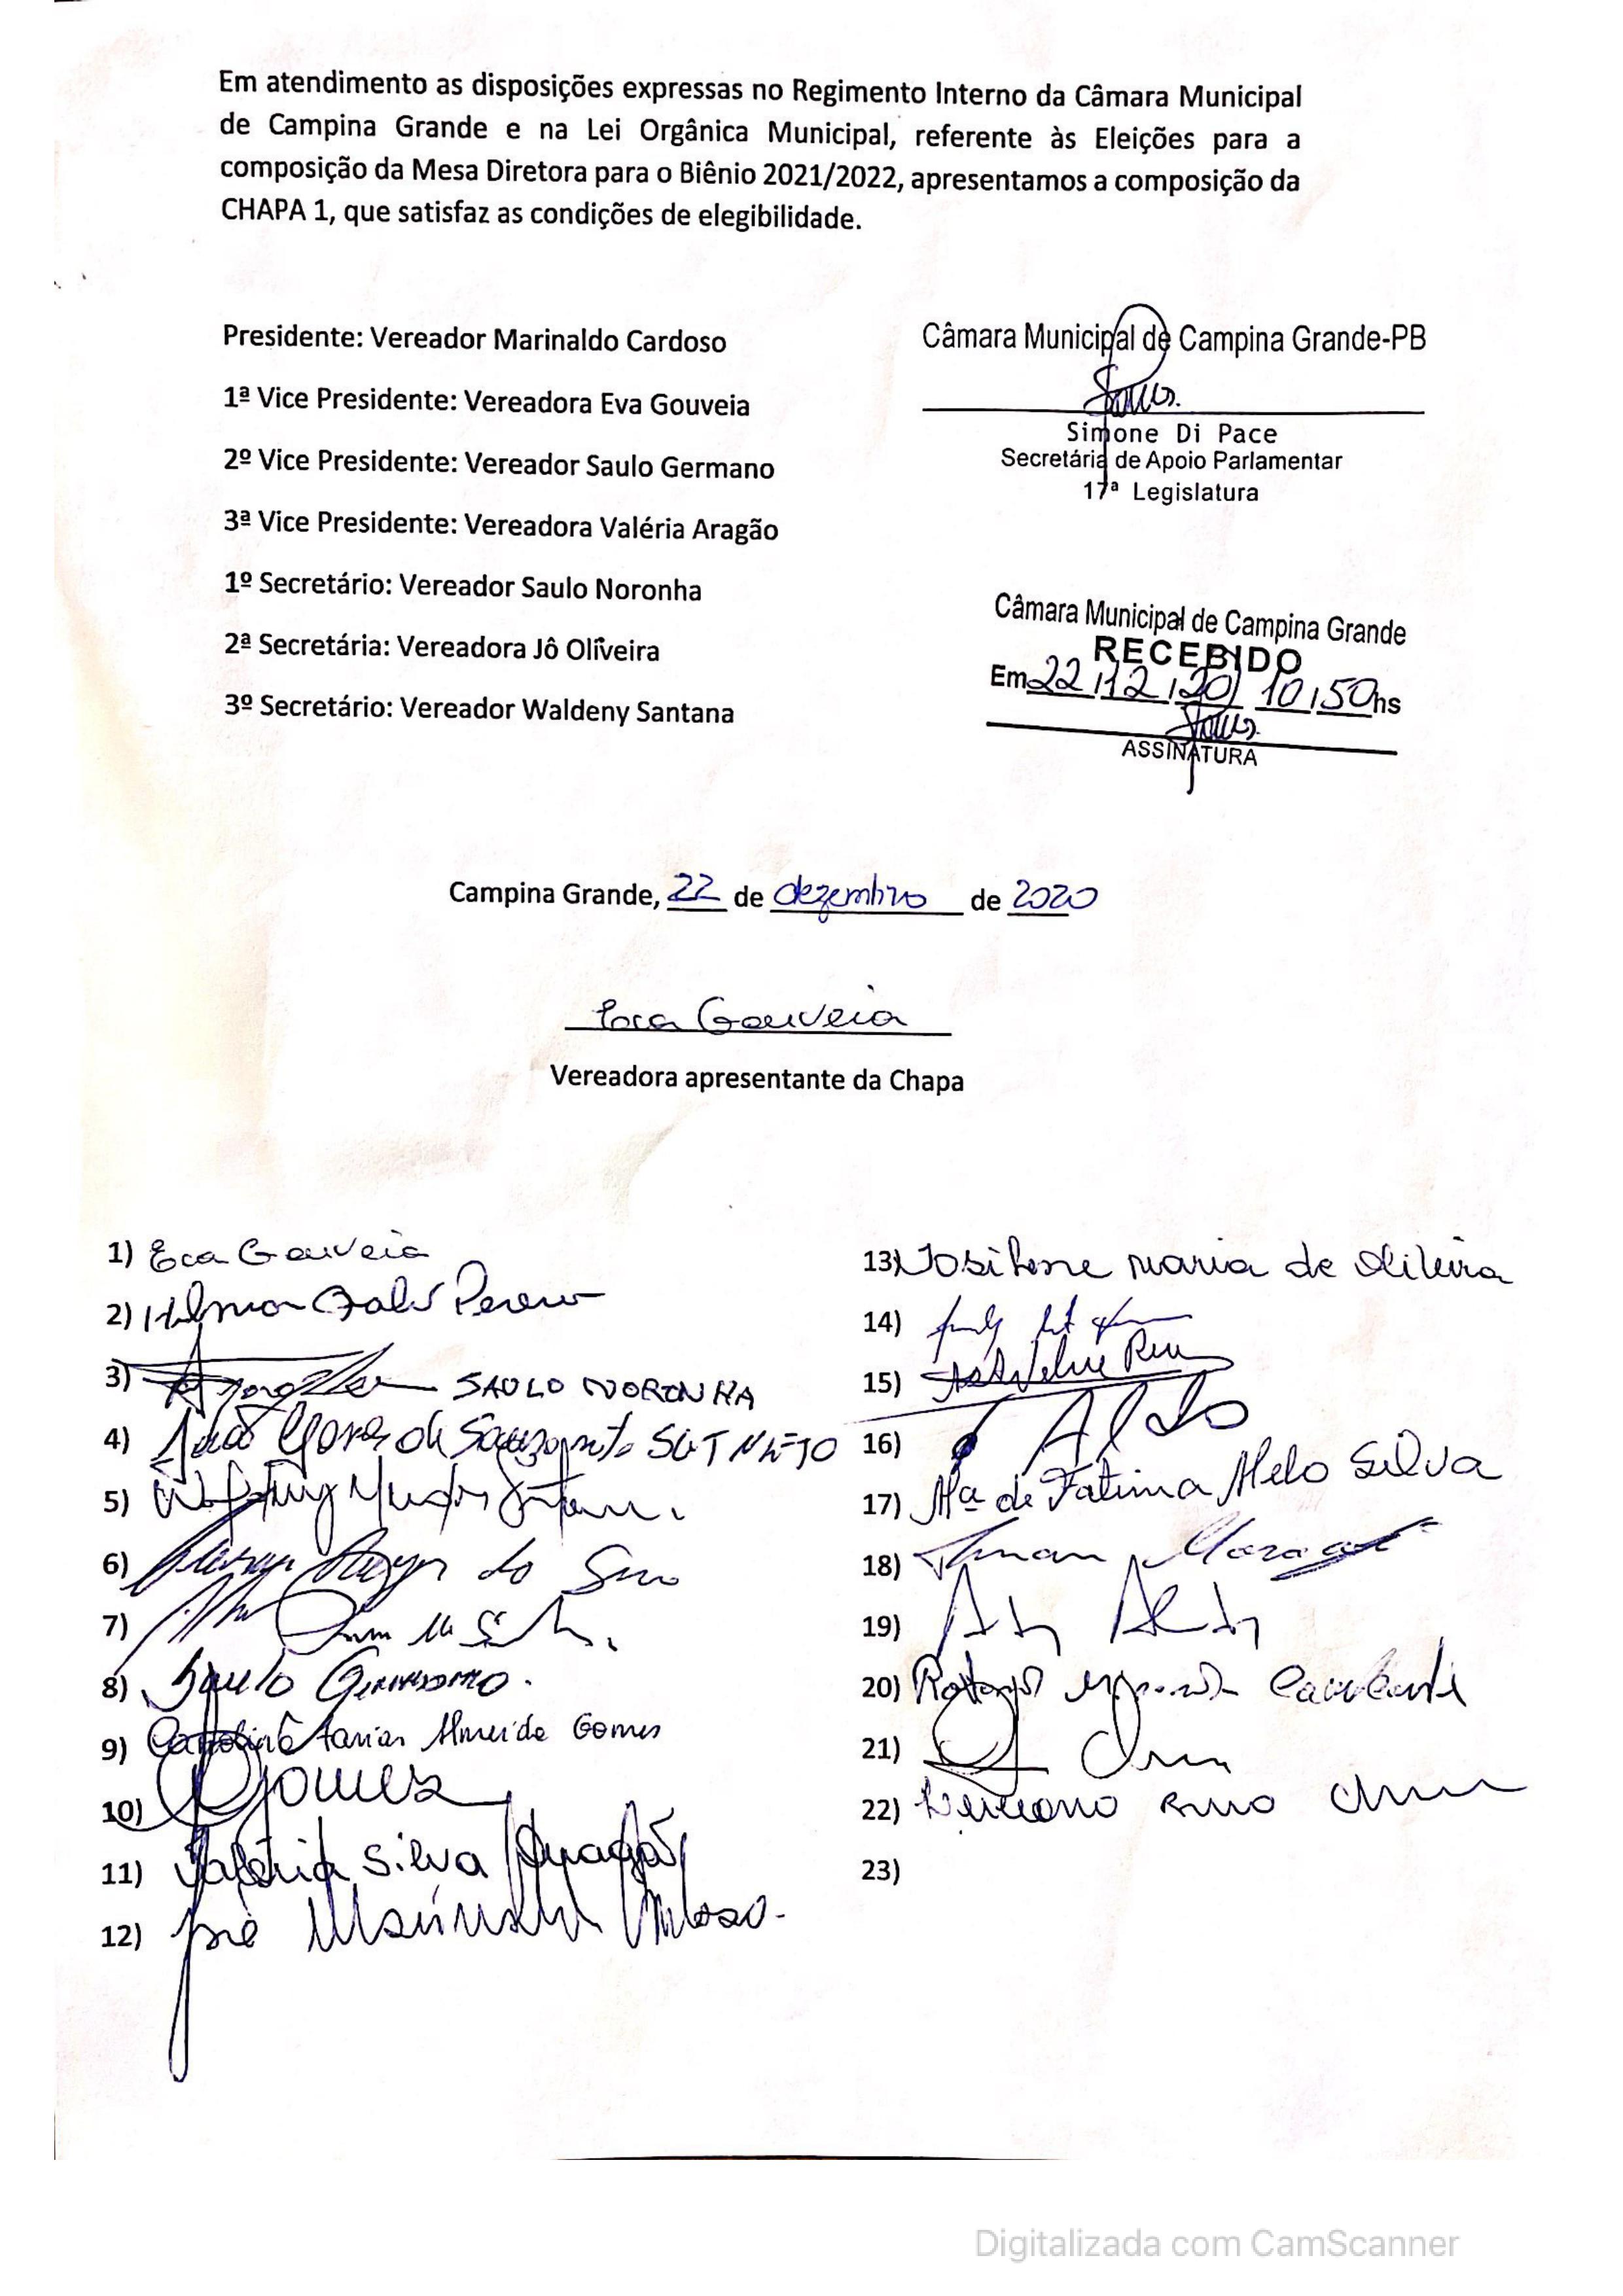 Em atendimento as disposições expressas no Regimento Interno da Câmara Municipal
de Campina Grande e na Lei Orgânica Municipal, referente às Eleições para a
composição da Mesa Diretora para o Biênio 2021/2022, apresentamos a composição da
CHAPA 1, que satisfaz as condições de elegibilidade.
Presidente: Vereador Marinaldo Cardoso
1ª Vice Presidente: Vereadora Eva Gouveia
2º Vice Presidente: Vereador Saulo Germano
3ª Vice Presidente: Vereadora Valéria Aragão
1º Secretário: Vereador Saulo Noronha
2ª Secretária: Vereadora Jô Oliveira
3º Secretário: Vereador Waldeny Santana
Câmara Municipal de Campina Grande-PB
Simone Di Pace
Secretária de Apoio Parlamentar
17ª Legislatura
Câmara Municipal de Campina Grande
RECEBIDO
Em 22/12/20 10:50hs
ASSINATURA
Campina Grande, 22 de dezembro de 2020
Eva Gouveia
Vereadora apresentante da Chapa
1) Eva Gouveia
2)
3) SAULO NORONHA
4)
5)
6)
7)
8) Saulo Germano.
9) Carolina Farias Almeida Gomes
10) Gomes
11) Valéria Silva Aragão
12) José Marinaldo Cardoso
13) Josilene Maria de Oliveira
14)
15)
16) Aldo
17) Mª de Fatima Melo Silva
18)
19)
20)
21)
22)
23)
Digitalizada com CamScanner